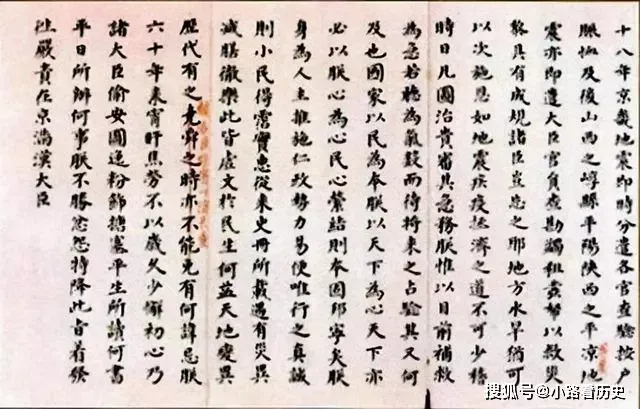 十八年京畿地震即時分遣各官查驗按戶
賑恤及後山西之崞縣平陽陝西之平涼地
震亦即遣大臣官員查勘蠲租發帑以救災
黎具有成規諸臣豈忘之耶地方水旱猶可
以次施恩如地震疾疫拯濟之道不可少緩
時日凡圖治貴審其急務朕惟以目前補救
為急若聽為氣數而待將來之占驗其又何
及也國家以民為本朕以天下為心天下亦
必以朕心為心民心縈結則本固邦寧矣朕
身為人主推施仁政勢力易便唯行之真誠
則小民得霑實惠從來史冊所載遇有災異
減膳徹樂此皆虛文於民生何益天地變異
歷代有之堯舜之時亦不能免有何諱忌朕
六十年來宵旰焦勞不以歲久少懈初心乃
諸大臣偷安圖逸粉飾
平生所讀何書
平日所辦何事朕不勝忿怨特降此旨着發
往嚴責在京滿漢大臣
搜狐号@小路看历史